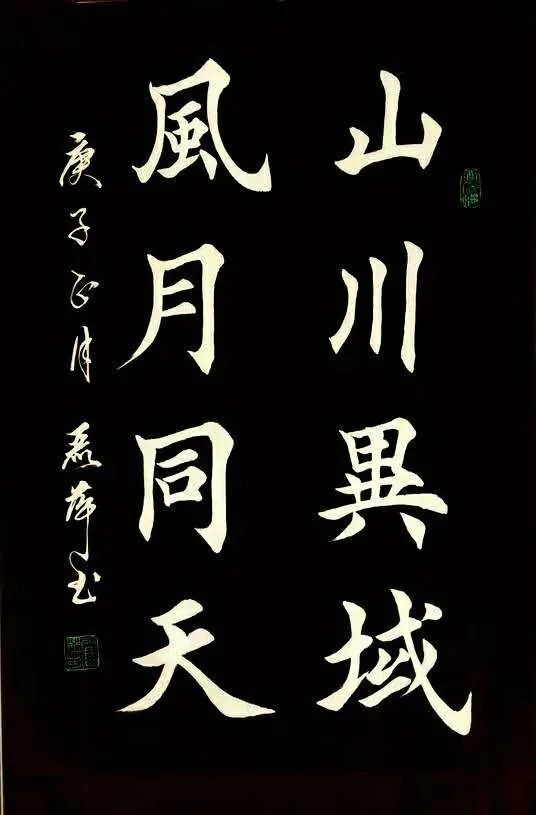 山川異域
風月同天
庚子正月 書